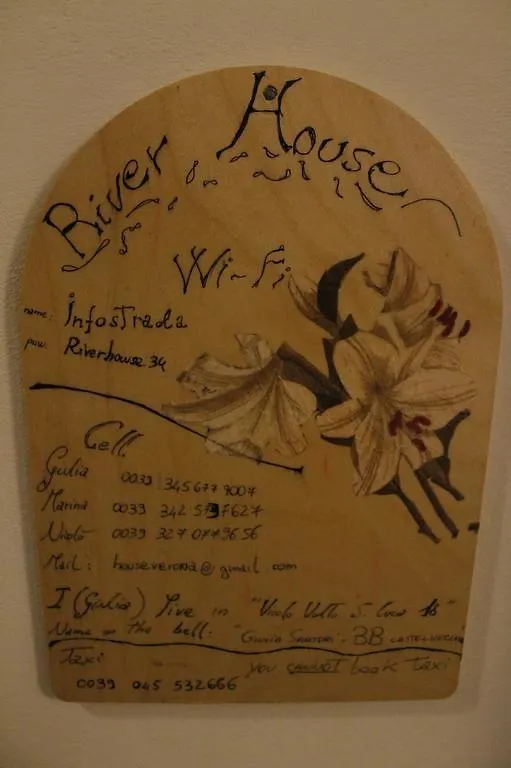 River House
Wi-Fi
name: Infostrada
psw: Riverhouse 34
Cell
Giulia 0039 345677 9007
Marina 0039 342 577627
Nicolò 0039 327 0779656
Mail: houseverona@gmail.com
I (Giulia) live in "Vicolo Volto S. Luca
Name on the bell: "Giulia Sartori - BB
Taxi you CANNOT book Taxi
0039 045 532666